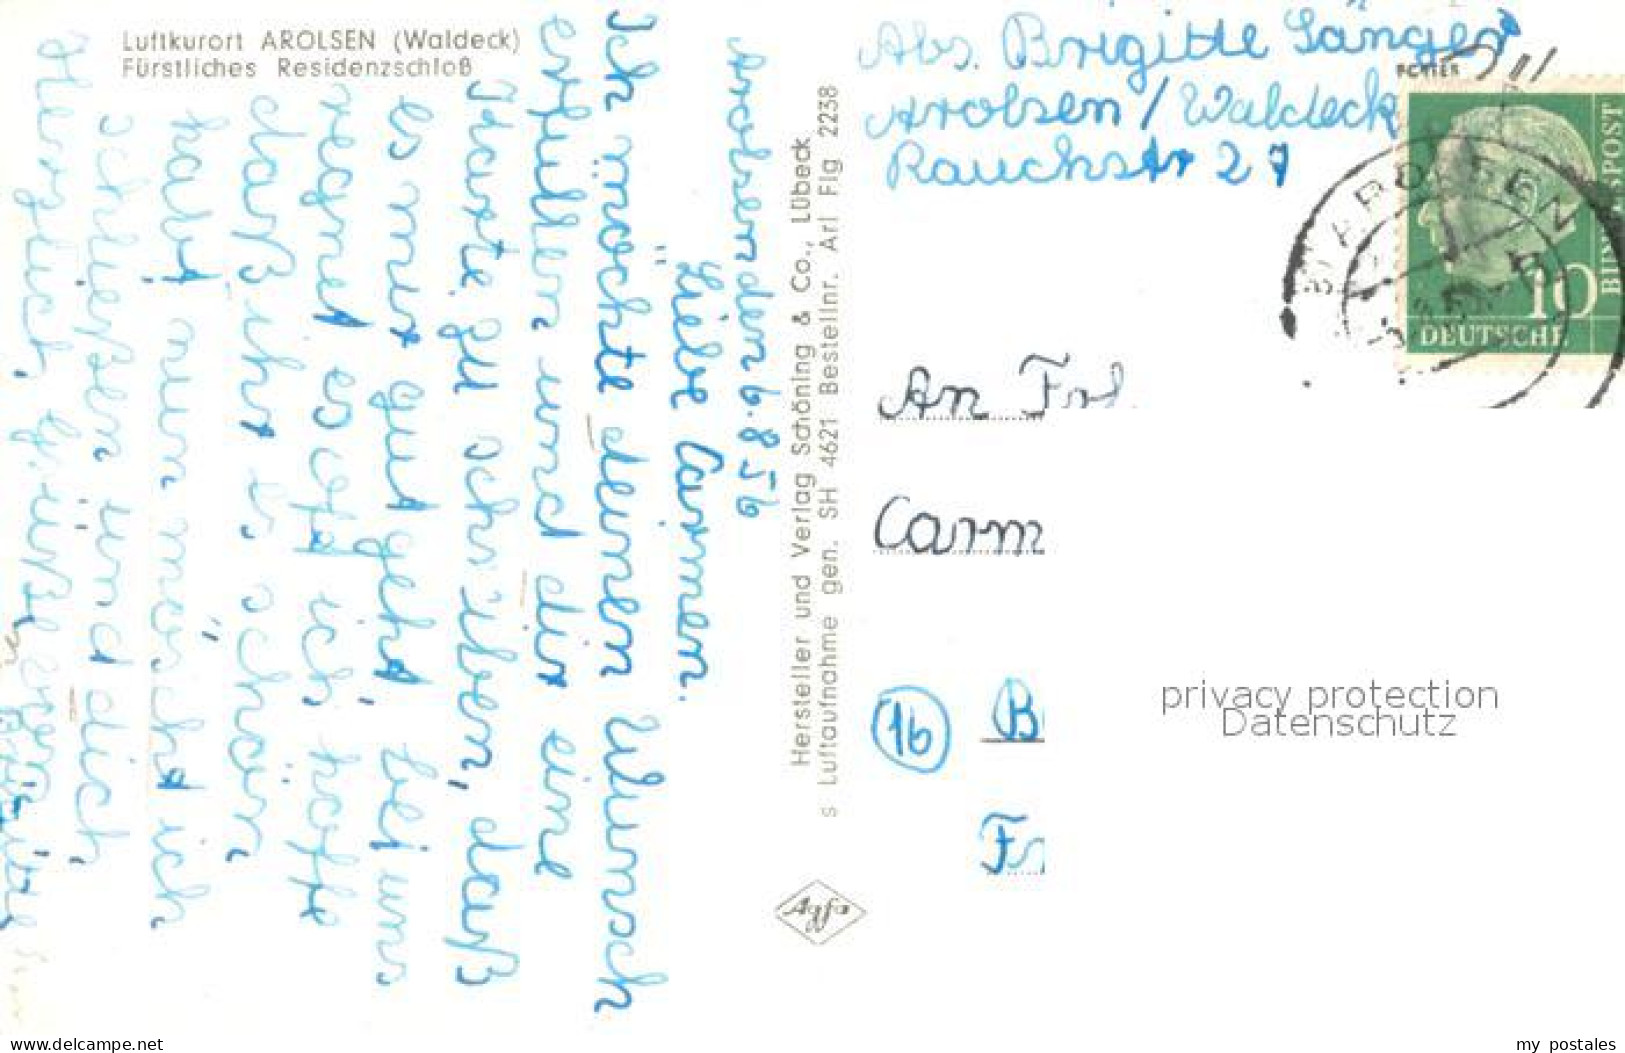 Luftkurort AROLSEN (Waldeck)
Fürstliches Residenzschloß
Arolsen den 6. 8 56
Liebe Carmen.
Ich möchte deinen Wunsch
erfüllen und dir eine
Karte zu schreiben, daß
es mir gut geht, bei uns
regnet es oft ich hoffe
daß ihr es schön
habt nun möcht ich
schließen und dich,
Herzlich, grüßen
Hersteller und Verlag Schöning & Co., Lübeck
s Luftaufnahme gen. SH 4621 Bestellnr. Arl Flg 2238
Agfa
Abs. Brigitte Sänger
Arolsen / Waldeck
Rauchstr 27
AROLSEN
10
DEUTSCHE
BUNDESPOST
An
Carm
16
B
Fr
privacy protection
Datenschutz
delcampe.net
my_postales